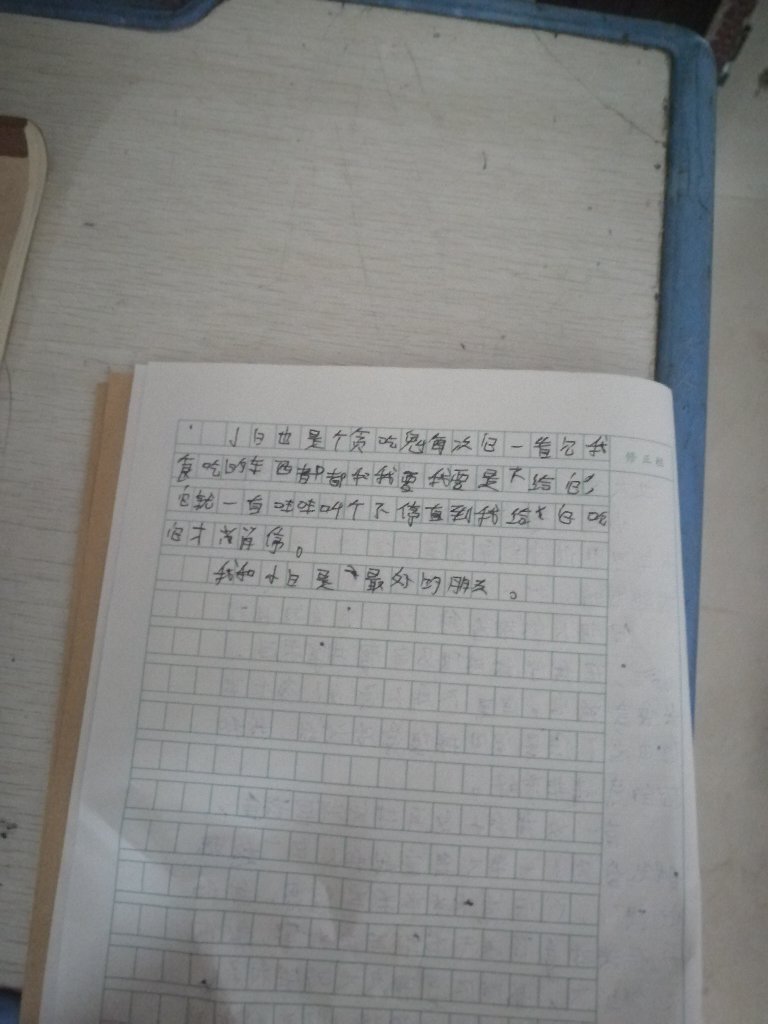 小白也是个贪吃鬼每次它一看见我
食吃的东西都都和我要我要是不给它
它就一直吐吐叫个不停直到我给它吃
它才肖停。
我和小白是最好的朋友。
修正栏